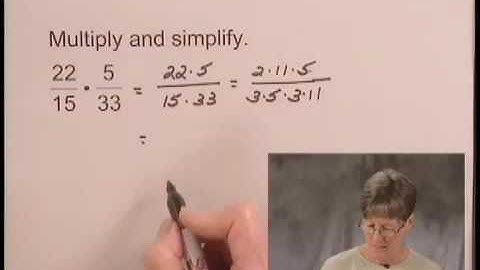 Multiply and simplify.
22/15 · 5/33 = 22·5/15·33 = 2·11·5/3·5·3·11
=